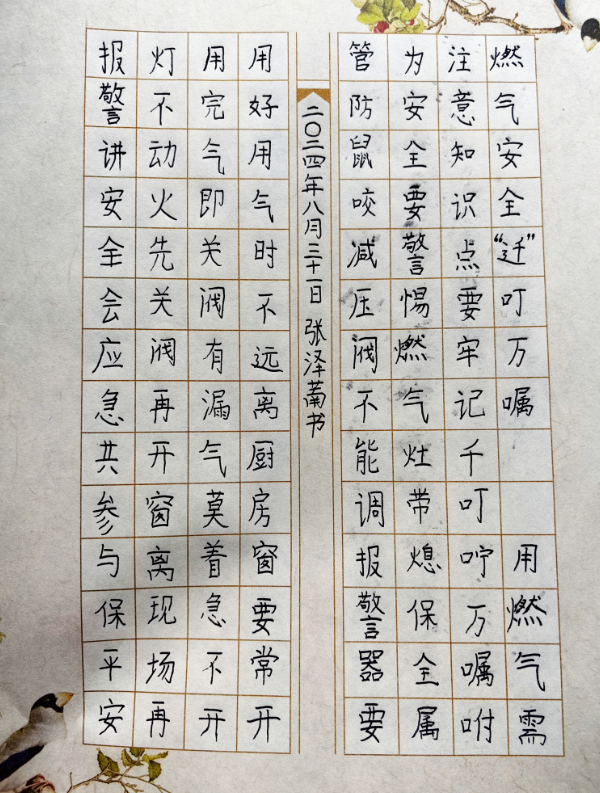 燃气安全“迁”叮万嘱 用燃气需
注意知识点要牢记千叮咛万嘱咐
为安全要警惕燃气灶带熄保全属
管防鼠咬减压阀不能调报警器要
二〇二四年八月三十一日 张泽萳书
用好用气时不远离厨房窗要常开
用完气即关阀有漏气莫着急不开
灯不动火先关阀再开窗离现场再
报警讲安全会应急共参与保平安